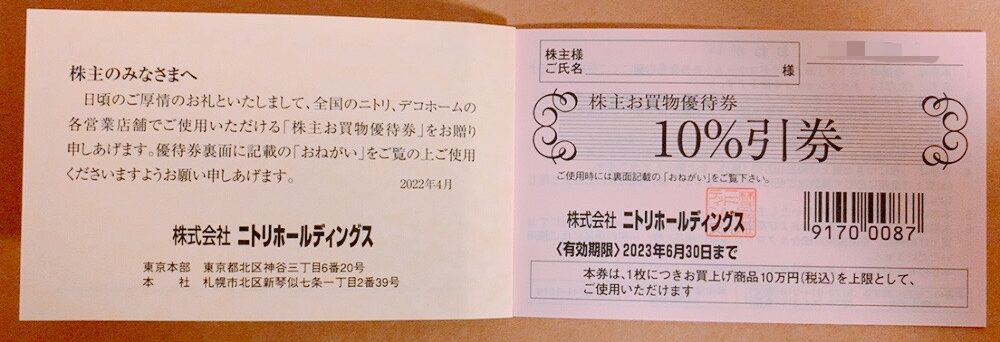 株主のみなさまへ
日頃のご厚情のお礼といたしまして、全国のニトリ、デコホームの
各営業店舗でご使用いただける「株主お買物優待券」をお贈り
申しあげます。優待券裏面に記載の「おねがい」をご覧の上ご使用
くださいますようお願い申しあげます。
2022年4月
株式会社 ニトリホールディングス
東京本部 東京都北区神谷三丁目6番20号
本 社 札幌市北区新琴似七条一丁目2番39号
株主様
ご氏名 様
株主お買物優待券
10%引券
ご使用時には裏面記載の「おねがい」をご覧下さい。
株式会社 ニトリホールディングス
9170 0087
〈有効期限〉2023年6月30日まで
本券は、1枚につきお買上げ商品10万円(税込)を上限として、
ご使用いただけます